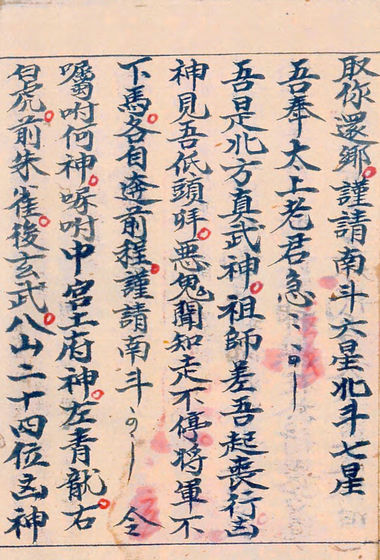 取你還鄉謹請南斗六星北斗七星
吾奉太上老君急
吾是北方真武神祖師差吾起喪行凶
神見吾低頭拜惡鬼聞知走不停將軍不
下馬各自逩前程謹請南斗令
囑咐何神咐中宮土府神左青龍右
白虎前朱雀後玄武八山二十四位凶神